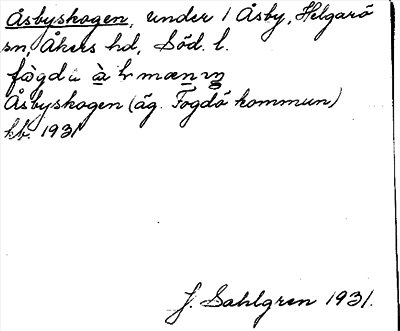 Åsbyskogen, under 1 Åsby, Helgarö
sn, Åkers hd, Söd. l.
Åsbyskogen (äg. Fogdö kommun)
kb. 1931
J. Sahlgren 1931.